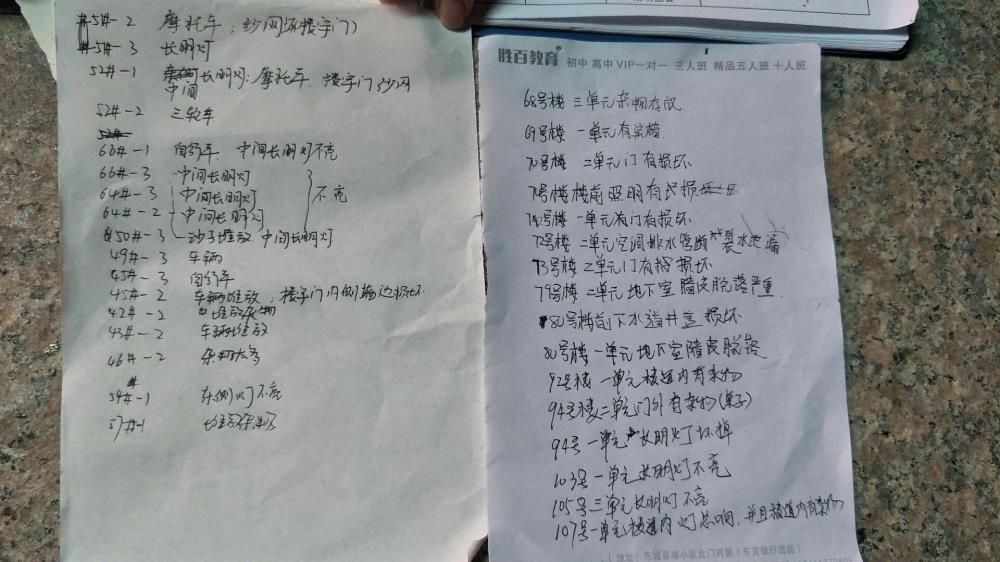 51#-2 摩托车,纱网坏楼宇门)
51#-3 长明灯
52#-1 长明灯:摩托车 楼宇门纱网
中间
52#-2 三轮车
52#
66#-1 自行车 中间长明灯不亮
66#-3 中间长明灯
64#-3 中间长明灯 不亮
64#-2 中间长明灯
50#-3 沙子堆放 中间长明灯
49#-3 车辆
45#-3 自行车
45#-2 车辆堆放,楼宇门内侧 边损坏
42#-2 堆放杂物
43#-2 车辆堆放
46#-2 杂物太多
54#-1 东侧灯不亮
57#-1 堆杂物
胜百教育 初中 高中 VIP一对一 三人班 精品五人班 十人班
68号楼 三单元杂物存放
69号楼 一单元有杂物
70号楼 二单元门有损坏
号楼楼前照明有损坏
号楼一单元门有损坏
72号楼 二单元空调排水管断裂水池漏
73号楼 二单元门有损坏
79号楼 二单元地下室墙皮脱落严重
80号楼前下水道井盖损坏
80号楼一单元地下室墙皮脱落
92号楼 一单元楼道内有杂物
94号楼二单元门外有杂物(桌子)
94号一单元长明灯坏掉
103号一单元长明灯不亮
105号三单元长明灯不亮
107号一单元楼道内灯总响,并且楼道内有杂物
地址:东城 湖小区北门对面(东营银行西侧)